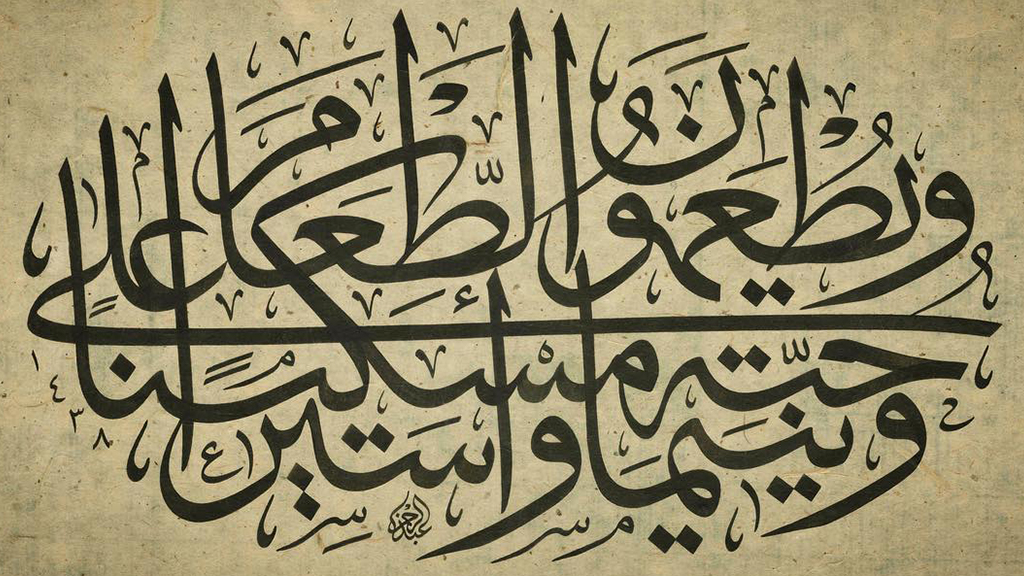 ويطعمون الطعام على
حبه مسكينا
ويتيما وأسيرا
١٤٣٨